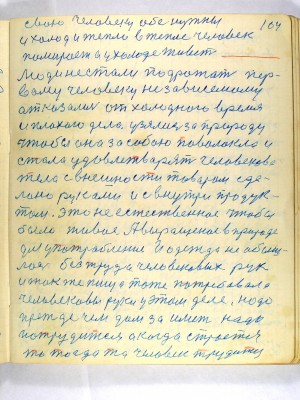 104
свою человеку обе нужны
и холод и тепло в тепле человек
помирает а у холоде живет
Люди не стали подрожат пер-
вому человеку независемому
отказалис от холодного время
и плохого дела. узялис за природу
чтобы она за собою поволокла и
стала удовлетварят человеково
тело с внешности товаром сде-
лано руками и с внутри продук-
том. Это не естественное чтобы
было живое А выращеное в природе
для употребление И одежда не обошу-
лас без труда человековых рук
и так же пища тоже потребовала
человековы руки у этом деле, надо
прежде чем дом заимет надо
потрудится а когда строется
то тогда та человек трудится